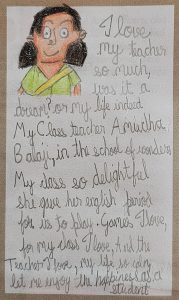 I love,
my teacher
so much,
was it a
dream? or my life indeed
My Class teacher Amudha
Balaji, in the school of wonders
My class so delightful
she gave her english period
for us to play. Games I love,
for my class I love, And the
Teacher I love, my life is calm
let me enjoy the happiness as a
student